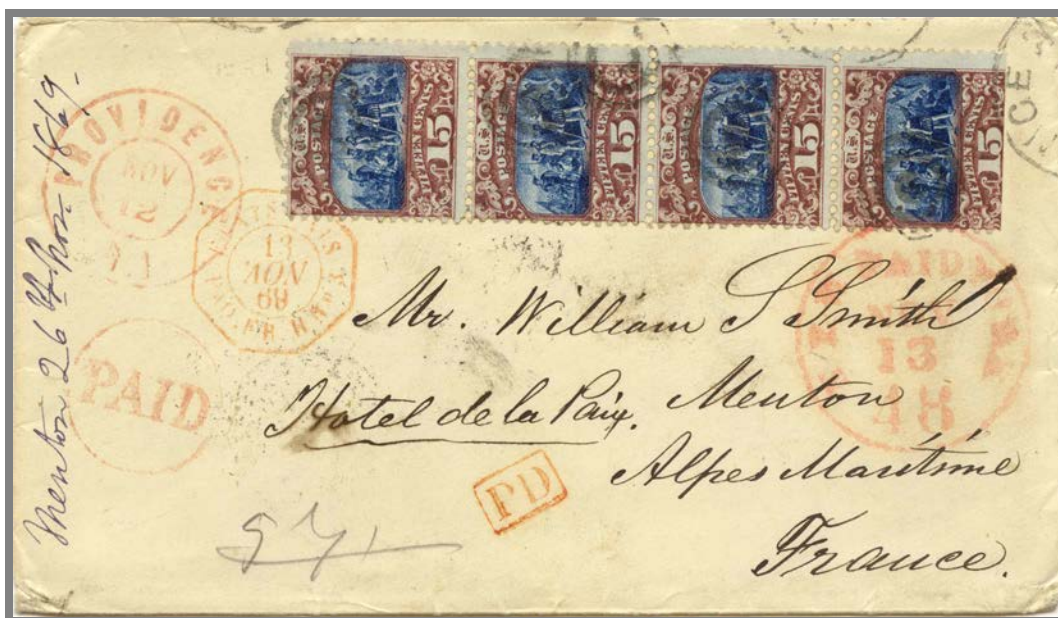 Menton 26th Nov 1869.
PROVIDENCE
NOV
12
PAID
13
NOV
69
U.S. POSTAGE
FIFTEEN CENTS
15
U.S. POSTAGE
FIFTEEN CENTS
15
U.S. POSTAGE
FIFTEEN CENTS
15
U.S. POSTAGE
FIFTEEN CENTS
15
PAID
13
48
Mr. William S Smith
Hotel de la Paix. Menton
Alpes Maritime
France.
PD